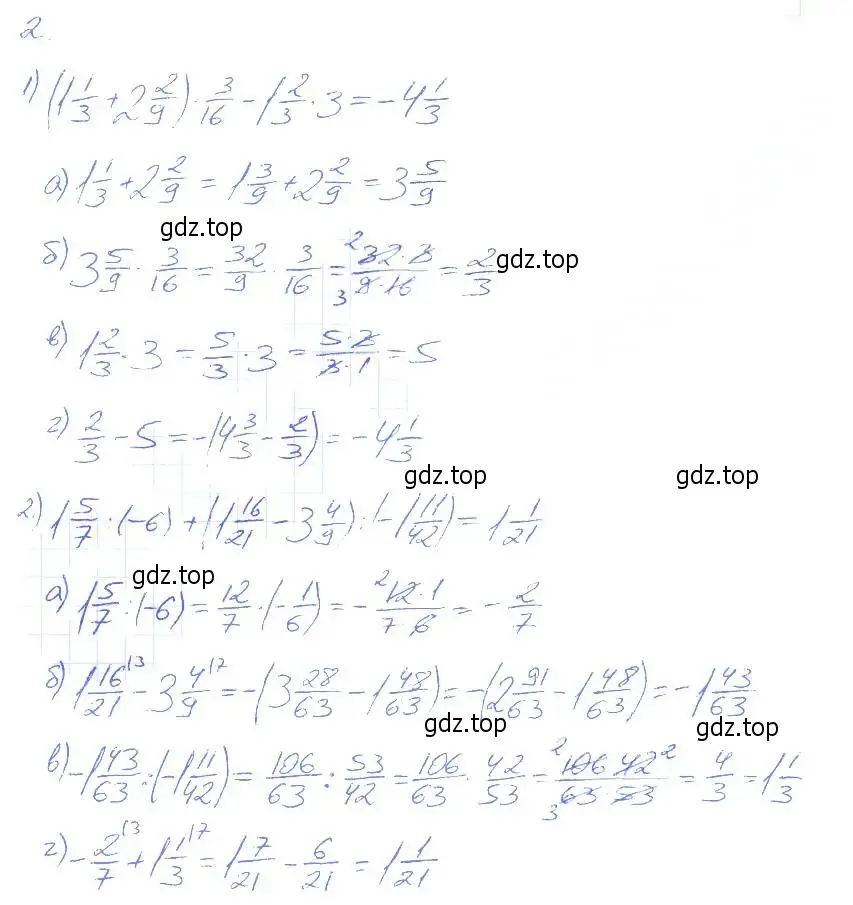 2.
1) (1 1/3 + 2 2/9) · 3/16 - 1 2/3 · 3 = -4 1/3
а) 1 1/3 + 2 2/9 = 1 3/9 + 2 2/9 = 3 5/9
gdz.top
б) 3 5/9 · 3/16 = 32/9 · 3/16 = 2 32·3 / 3 9·16 = 2/3 gdz.top
в) 1 2/3 · 3 = 5/3 · 3 = 5·3 / 3·1 = 5
г) 2/3 - 5 = -(4 3/3 - 2/3) = -4 1/3
gdz.top gdz.top
2.) 1 5/7 · (-6) + (1 16/21 - 3 4/9) : (-1 11/42) = 1 1/21
gdz.top
а) 1 5/7 : (-6) = 12/7 · (-1/6) = - 2 12·1 / 7 6 = -2/7
б) 1 16/21 |3 - 3 4/9 |7 = -(3 28/63 - 1 48/63) = -(2 91/63 - 1 48/63) = -1 43/63
gdz.top gdz.top
в) -1 43/63 : (-1 11/42) = 106/63 : 53/42 = 106/63 · 42/53 = 2 106·42 2 / 3 63·53 = 4/3 = 1 1/3
г) -2/7 |3 + 1 1/3 |7 = 1 7/21 - 6/21 = 1 1/21